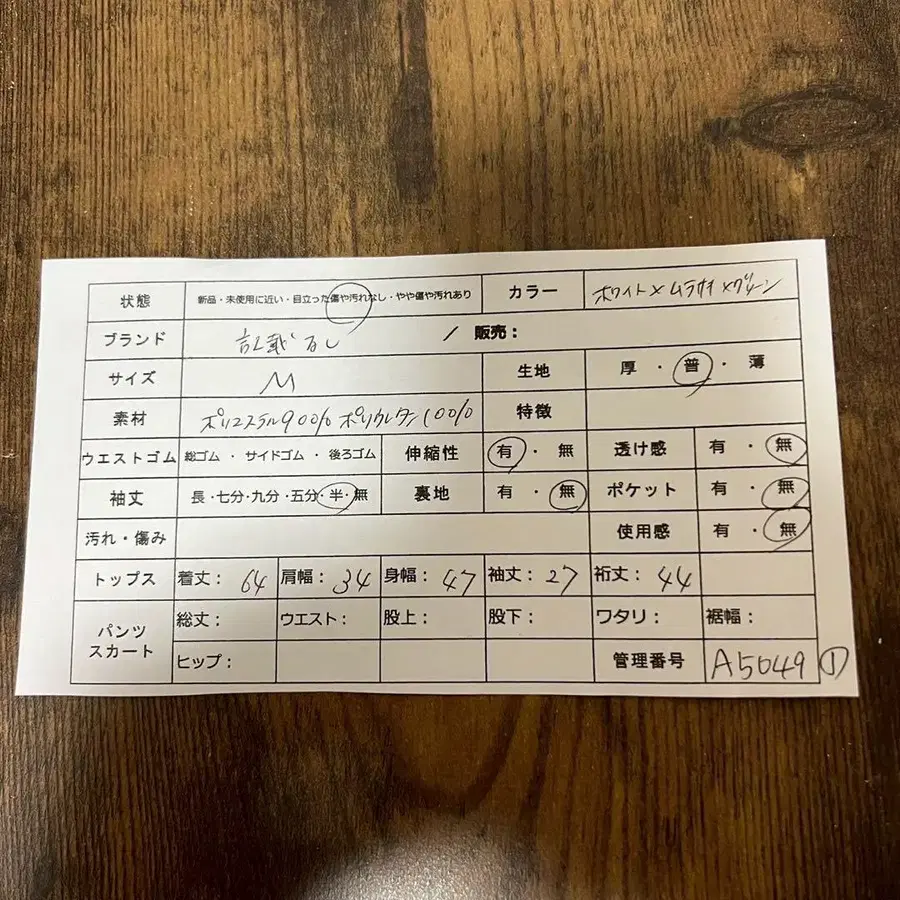 状態 新品・未使用に近い・目立った傷や汚れなし・やや傷や汚れあり カラー ホワイト×ムラサキ×グリーン
ブランド 記載なし / 販売：
サイズ M 生地 厚・普・薄
素材 ポリエステル90% ポリウレタン10% 特徴
ウエストゴム 総ゴム ・ サイドゴム ・ 後ろゴム 伸縮性 有・無 透け感 有・無
袖丈 長・七分・九分・五分・半・無 裏地 有・無 ポケット 有・無
汚れ・傷み 使用感 有・無
トップス 着丈：64 肩幅：34 身幅：47 袖丈：27 裄丈：44
パンツ スカート 総丈： ウエスト： 股上： 股下： ワタリ： 裾幅：
ヒップ： 管理番号 A5049 ①